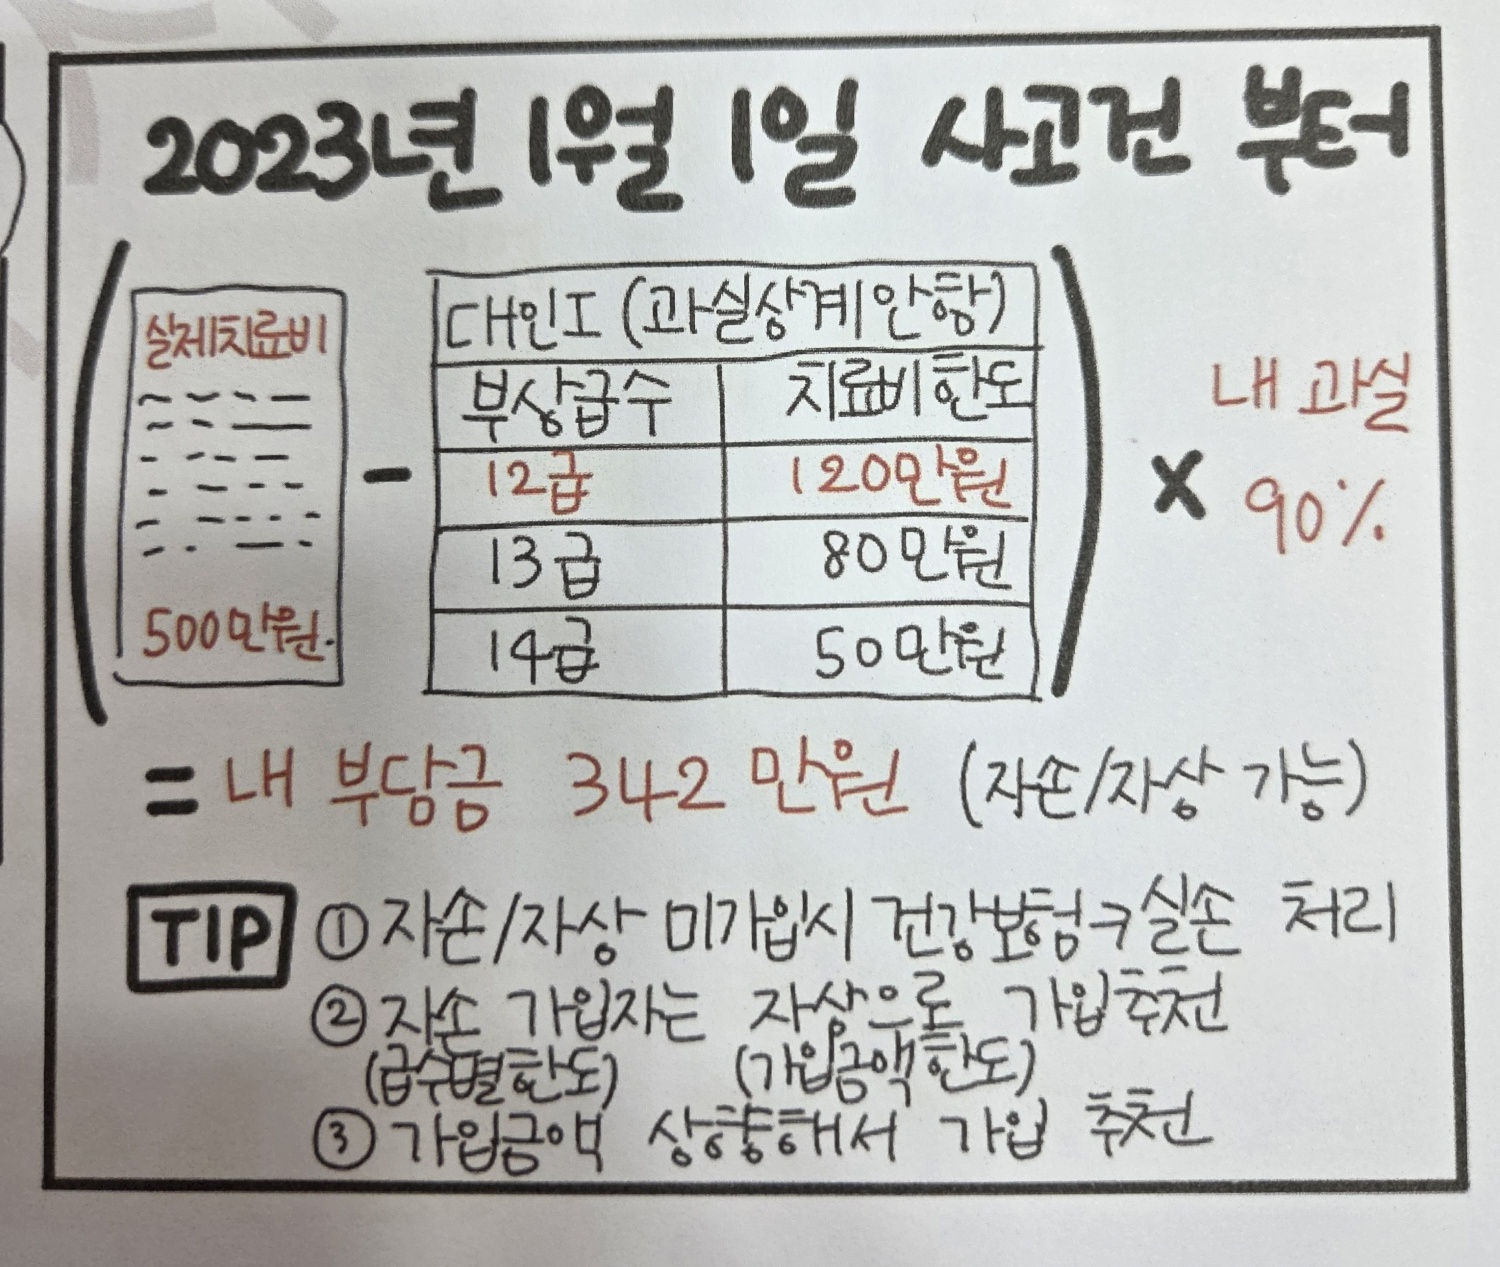 2023년 1월 1일 사고건 부터
실제치료비
500만원.
-
대인I (과실상계안함)
부상급수 치료비한도
12급 120만원
13급 80만원
14급 50만원
x
내 과실
90%
= 내 부담금 342만원 (자손/자상 가능)
TIP ①자손/자상 미가입시 건강보험→실손 처리
②자손 가입자는 자상으로 가입추천
(급수별한도) (가입금액한도)
③가입금액 상향해서 가입 추천